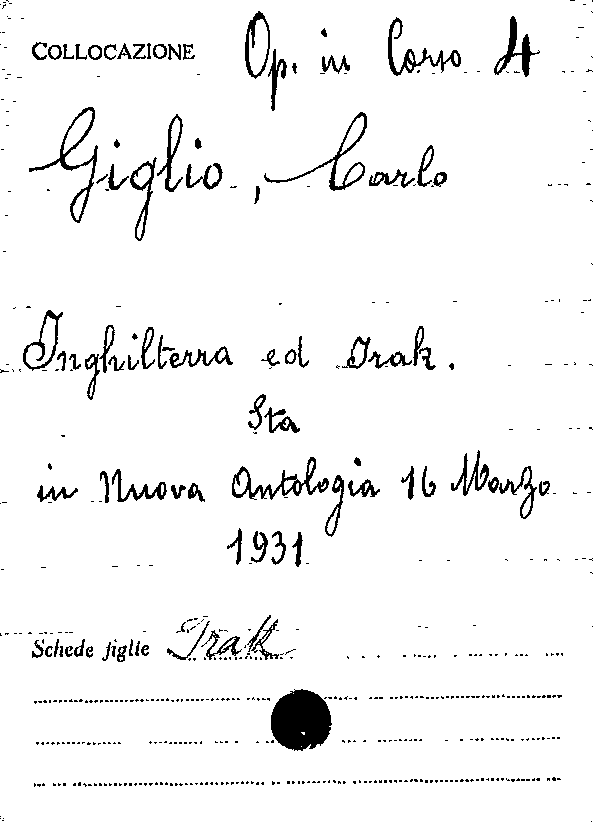 COLLOCAZIONE Op. in Corso 4
Giglio, Carlo
Inghilterra ed Irak.
Sta
in Nuova Antologia 16 Marzo
1931
Schede figlie Irak